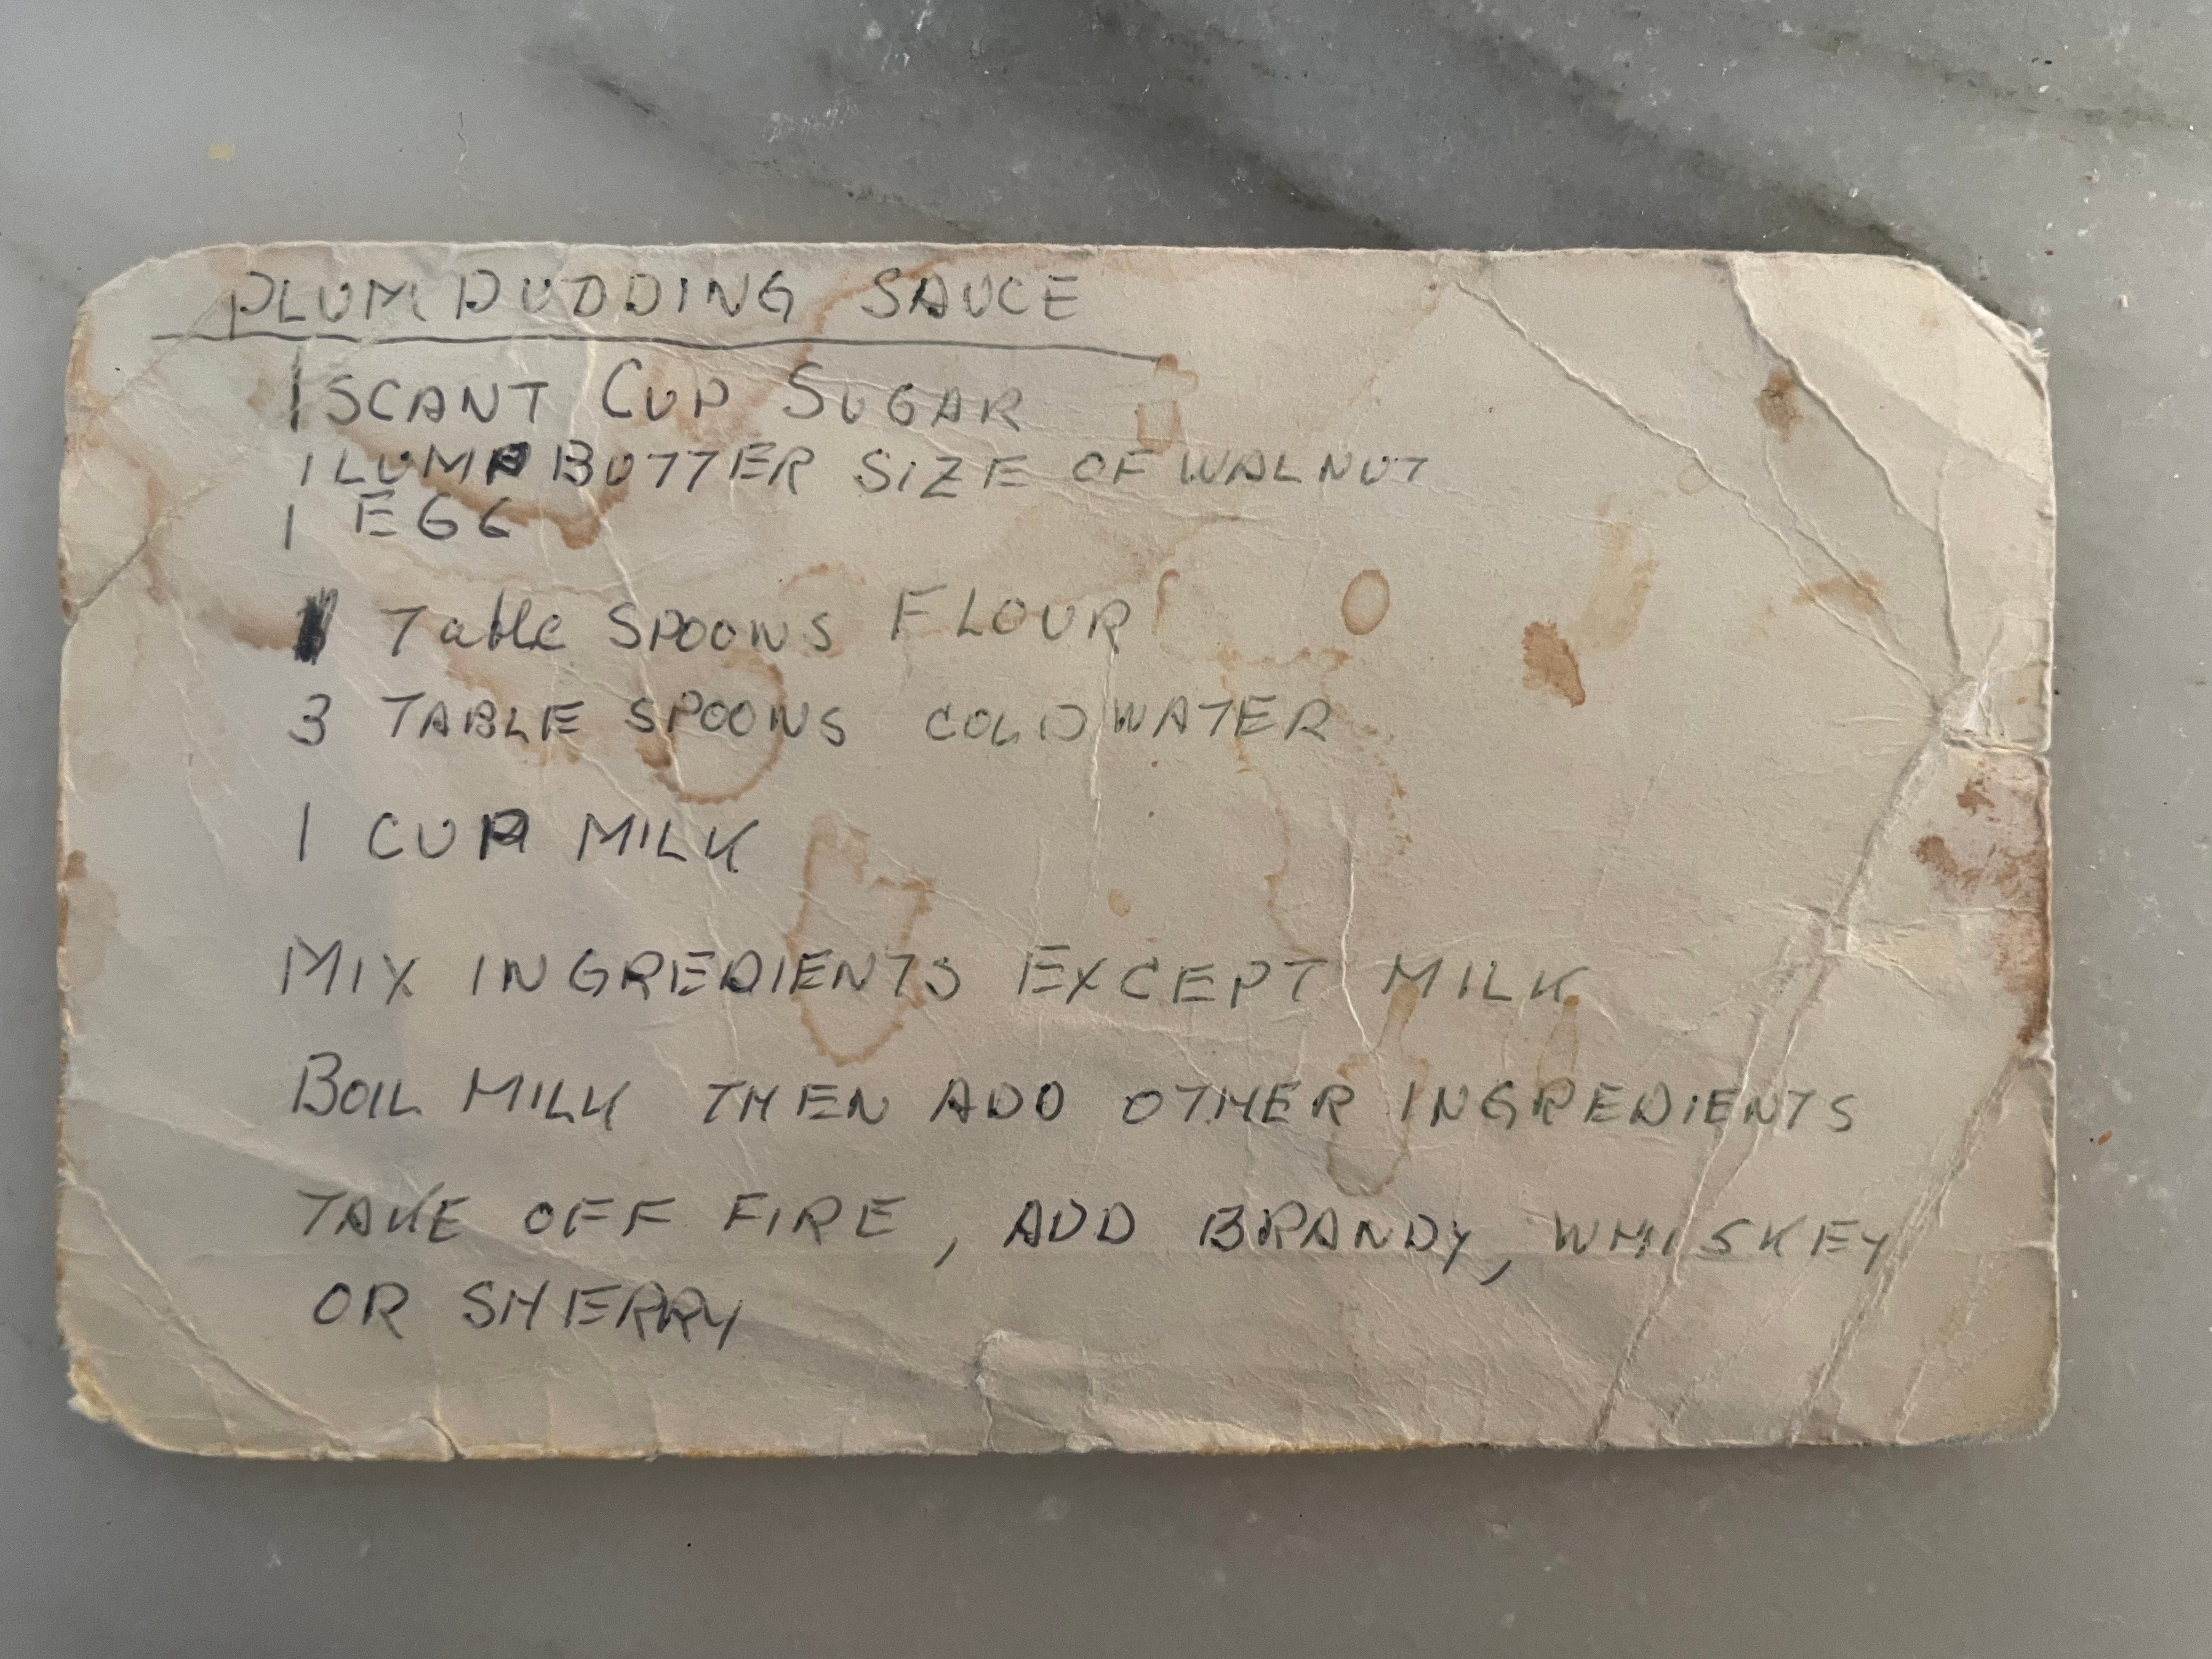 PLUM PUDDING SAUCE
1 SCANT CUP SUGAR
1 LUMP BUTTER SIZE OF WALNUT
1 EGG
Table SPOONS FLOUR
3 TABLE SPOONS COLD WATER
1 CUP MILK
MIX INGREDIENTS EXCEPT MILK
BOIL MILK THEN ADD OTHER INGREDIENTS
TAKE OFF FIRE, ADD BRANDY, WHISKEY
OR SHERRY